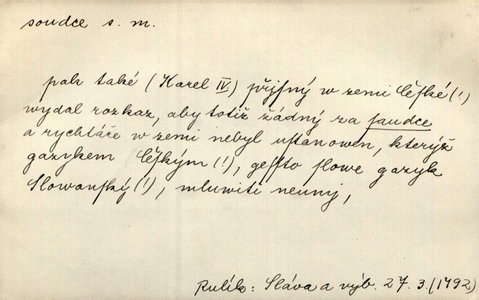 soudce s. m.
pak také (Karel IV.) přjsný w zemi Cžeſké (!)
wydal rozkaz, aby totiž žádný za ſaudce
a rychtáře w zemi nebyl uſtanowen, kterýž
gazykem Cžeſkým (!), geſſto ſlowe gazyk
Slowanſký (!), mluwiti neumj,
Rulík: Sláva a výb. 27. 3. (1792)